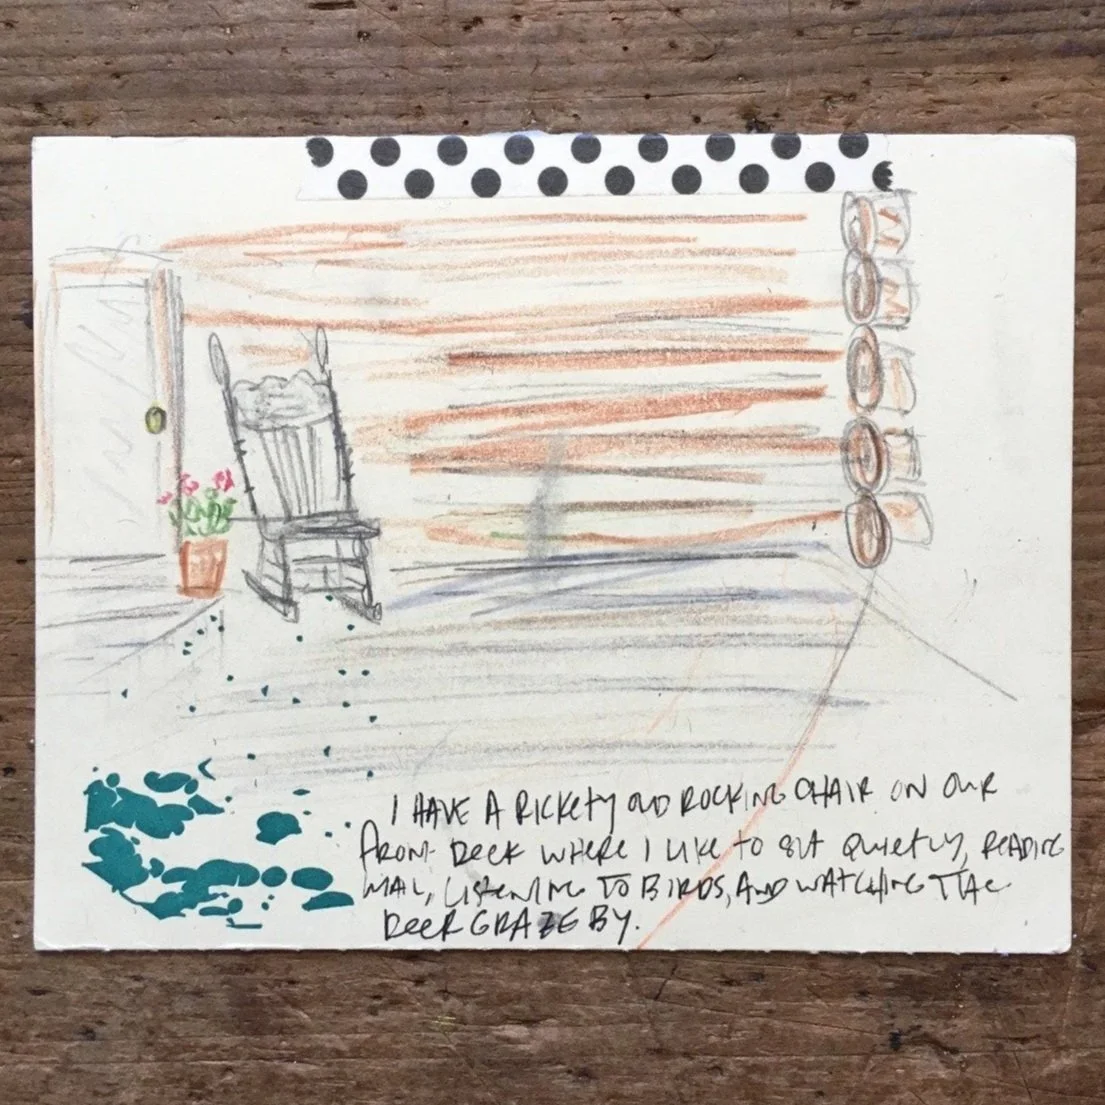 I HAVE A RICKETY OLD ROCKING CHAIR ON OUR
FRONT DECK WHERE I LIKE TO SIT QUIETLY, READING
MAIL, LISTENING TO BIRDS, AND WATCHING THE
DEER GRAZE BY.